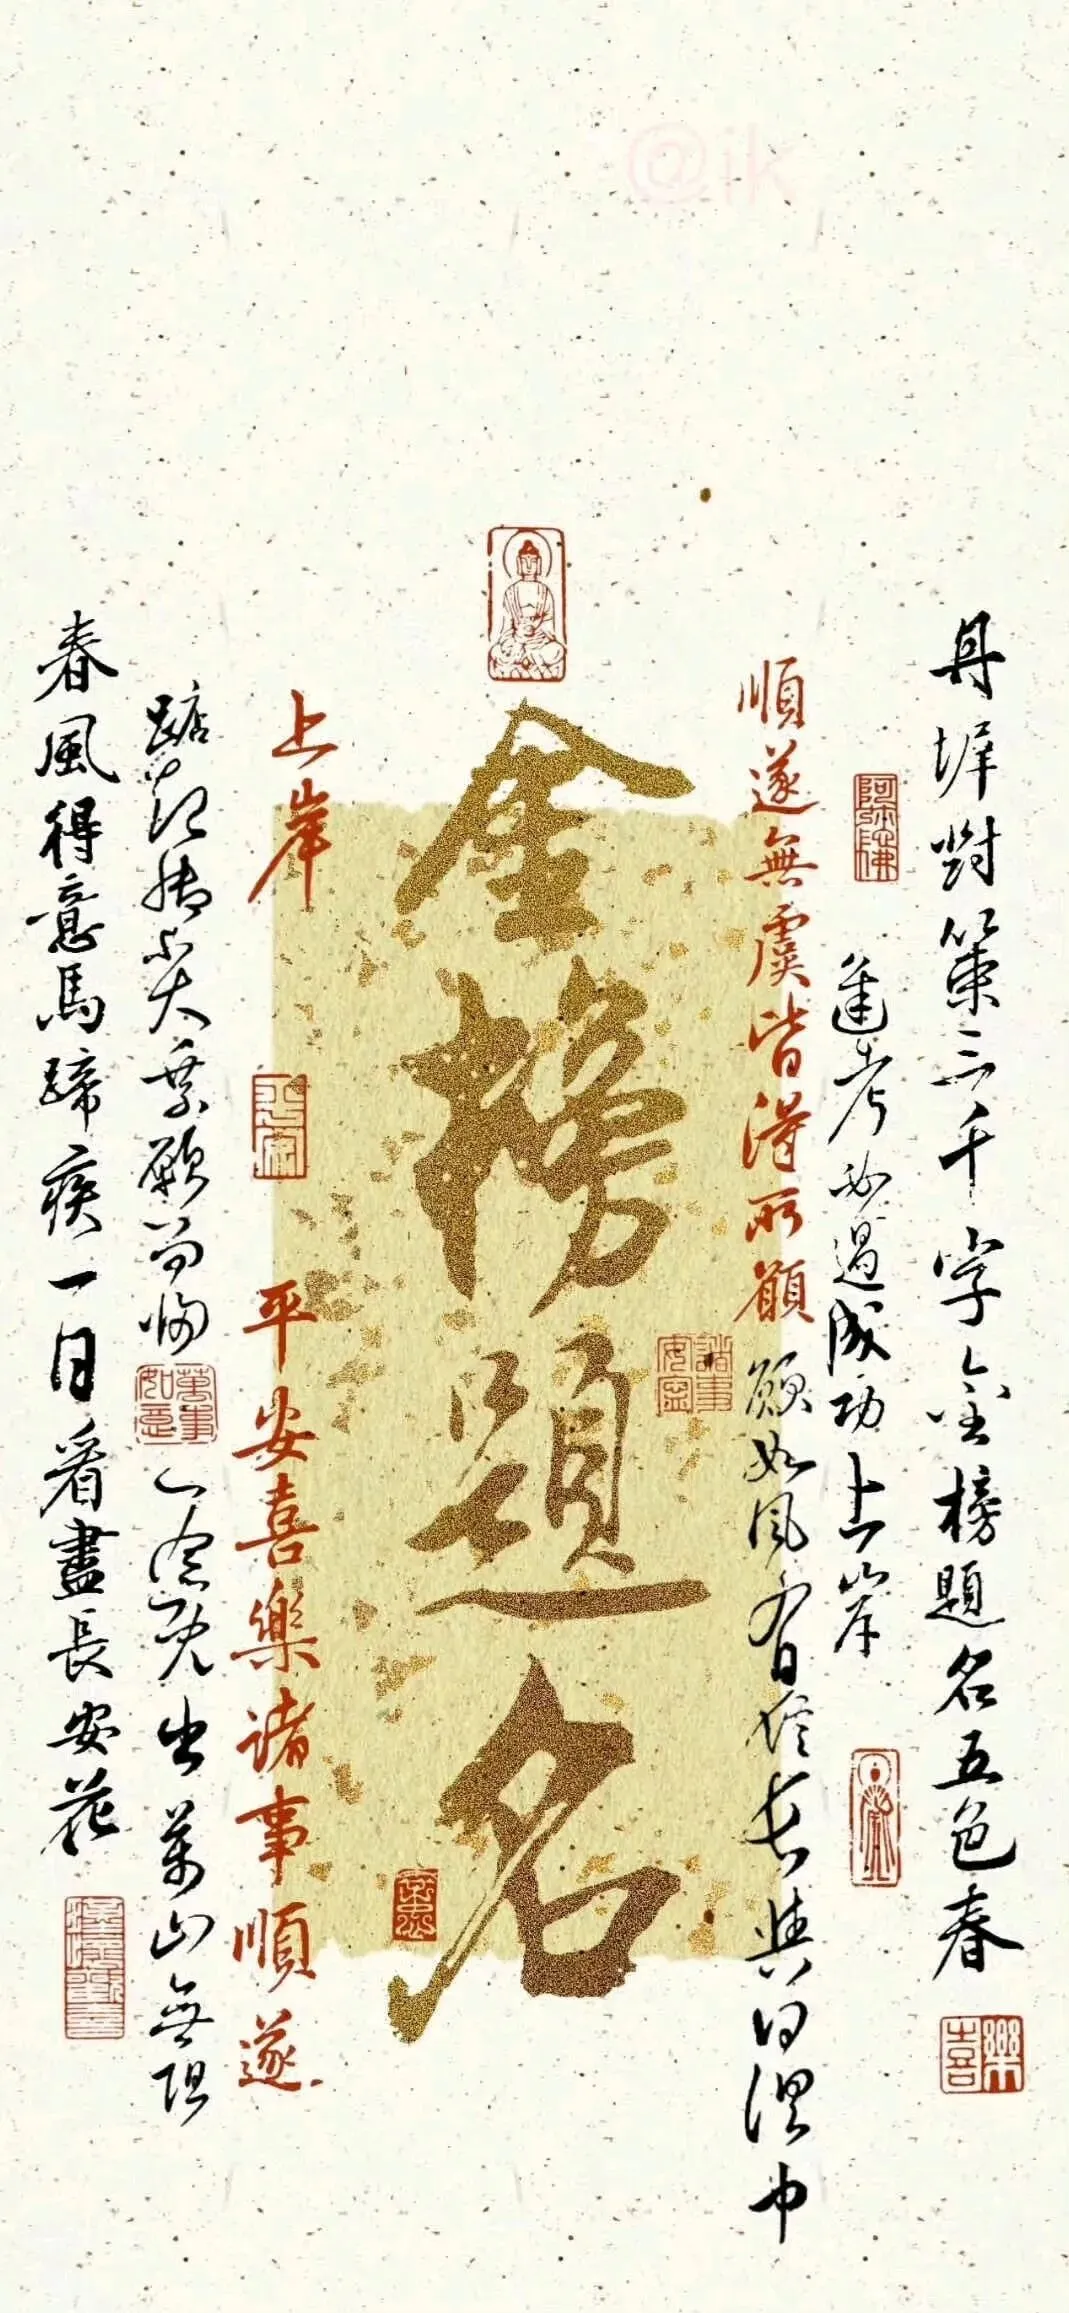 @ik
丹墀對策三千字金榜題名五色春
喜樂
阿彌陀佛
逢考必過成功上岸
順遂無虞皆得所願
諸事
安寧
願如風有信長與日俱中
金榜題名
上岸
平安
平安喜樂諸事順遂
萬事
如意
一念既出萬山無阻
春風得意馬蹄疾一日看盡長安花